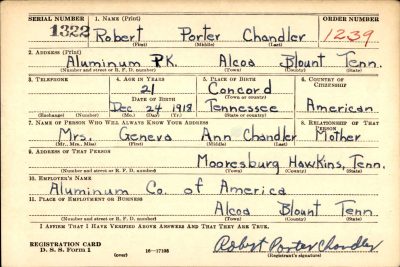 SERIAL NUMBER 1. NAME (Print) ORDER NUMBER
1322 Robert Porter Chandler 1239
(First) (Middle) (Last)
2. ADDRESS (Print)
Aluminum PK. Alcoa Blount Tenn.
(Number and street or R. F. D. number) (Town) (County) (State)
3. TELEPHONE 4. AGE IN YEARS 5. PLACE OF BIRTH 6. COUNTRY OF CITIZENSHIP
21 Concord
DATE OF BIRTH (Town or county)
Dec 24 1918 Tennessee American
(Exchange) (Number) (Mo.) (Day) (Yr.) (State or country)
7. NAME OF PERSON WHO WILL ALWAYS KNOW YOUR ADDRESS 8. RELATIONSHIP OF THAT PERSON
Mrs. Geneva Ann Chandler Mother
(Mr., Mrs., Miss) (First) (Middle) (Last)
9. ADDRESS OF THAT PERSON
Mooresburg Hawkins, Tenn.
(Number and street or R. F. D. number) (Town) (County) (State)
10. EMPLOYER'S NAME
Aluminum Co. of America
11. PLACE OF EMPLOYMENT OR BUSINESS
Alcoa Blount Tenn.
(Number and street or R. F. D. number) (Town) (County) (State)
I AFFIRM THAT I HAVE VERIFIED ABOVE ANSWERS AND THAT THEY ARE TRUE.
REGISTRATION CARD
D. S. S. Form 1 (over) 16—17105 Robert Porter Chandler
(Registrant's signature)